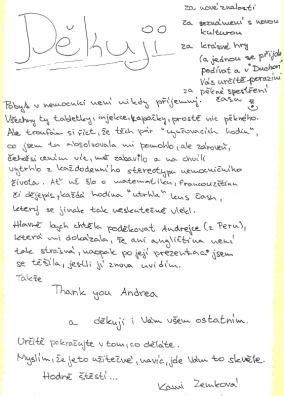 Děkuji
za nové znalosti
za seznámení s novou
kulturou
za krásné hry
(a jednou se přijdu
podívat a v "Duchovi"
Vás určitě porazím
za pěkné zpestření
času
Pobyt v nemocnici není nikdy příjemný.
Všechny ty tabletky, injekce, kapačky, prostě nic pěkného.
Ale troufám si říct, že těch pár "vyučovacích hodin",
co jsem tu absolvovala mi pomohlo, ale zároveň,
čehož cením víc, mě zabavilo a na chvíli
vytrhlo z každodenního stereotypu nemocničního
života. Ať už šlo o matematiku, francouzštinu
či dějepis, každá hodina "utrhla" kus času,
který se jinak tak neskutečně vlekl.
Hlavně bych chtěla poděkovat Andrejce (z Peru),
která mi dokázala, že ani angličtina není
tak strašná, naopak po její prezentaci jsem
se těšila, jestli ji znova uvidím.
Takže
Thank you Andrea
a děkuji i Vám všem ostatním.
Určitě pokračujte v tom, co děláte.
Myslím, že je to užitečné, navíc, jde Vám to skvěle.
Hodně štěstí...
Kami Zemková